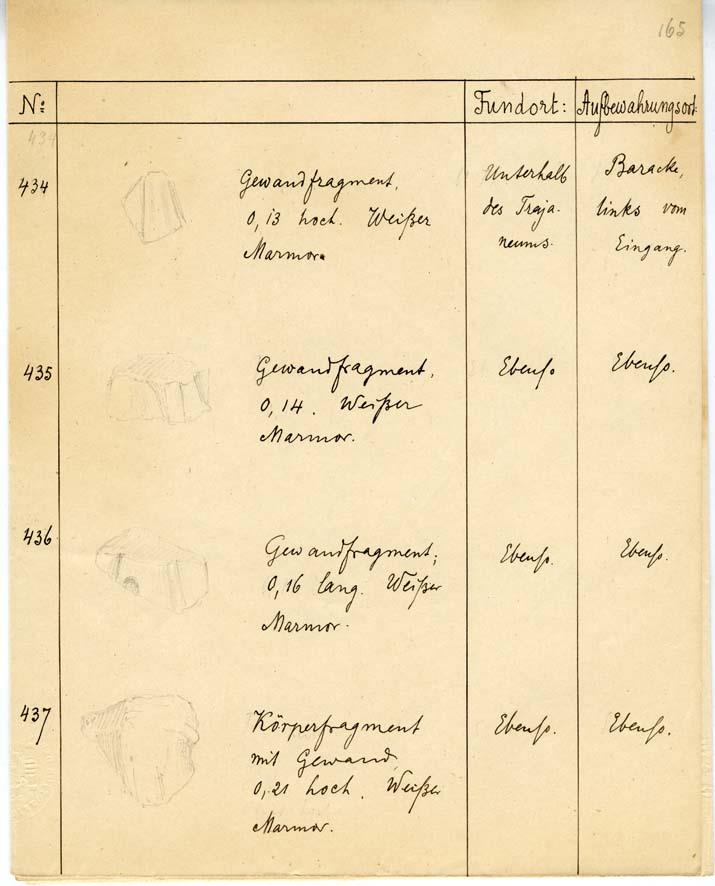 165
Nº: Fundort: Aufbewahrungsort:
434
434
Gewandfragment,
0,13 hoch. Weißer
Marmor.
Unterhalb
des Traja-
neums.
Baracke,
links vom
Eingang.
435
Gewandfragment,
0,14. Weißer
Marmor.
Ebenso
Ebenso.
436
Gewandfragment;
0,16 lang. Weißer
Marmor.
Ebenso.
Ebenso.
437
Körperfragment
mit Gewand,
0,21 hoch. Weißer
Marmor.
Ebenso.
Ebenso.